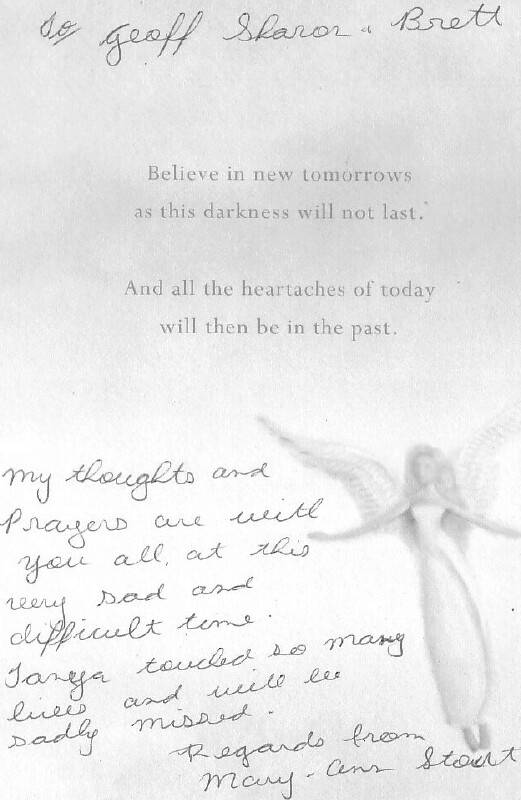 To Geoff Sharon & Brett
Believe in new tomorrows
as this darkness will not last.
And all the heartaches of today
will then be in the past.
My thoughts and
Prayers are with
you all, at this
very sad and
difficult time.
Tanya touched so many
lives and will be
sadly missed.
Regards from
Mary-Ann